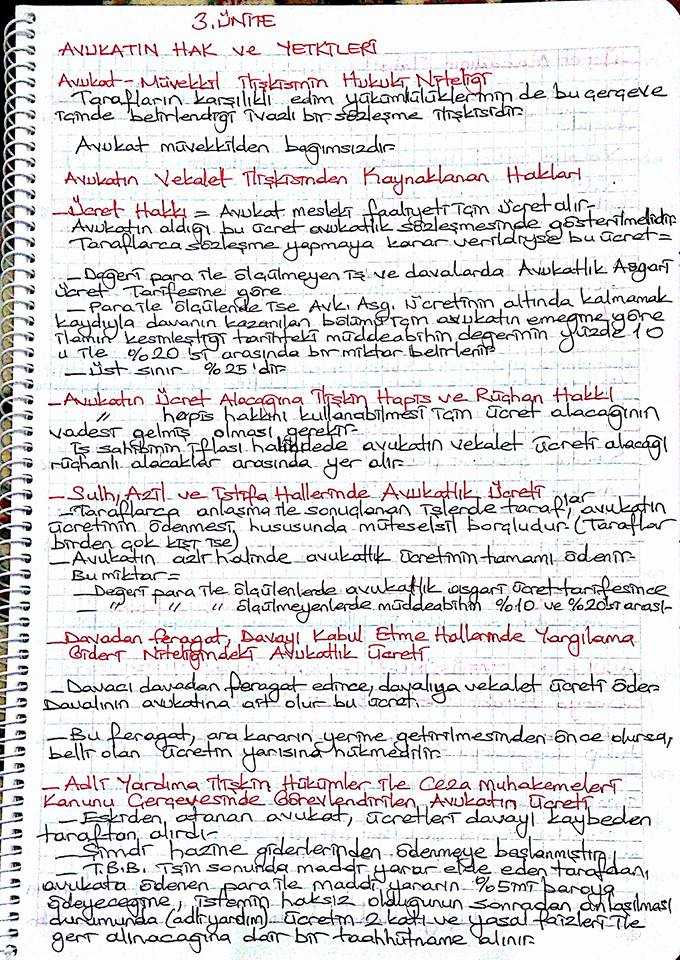 3. ÜNİTE
AVUKATIN HAK ve YETKİLERİ
Avukat - Müvekkil İlişkisinin Hukuki Niteliği
Tarafların karşılıklı edim yükümlülüklerinin de bu çerçeve
içinde belirlendiği ivazlı bir sözleşme ilişkisidir.
Avukat müvekkilden bağımsızdır.
Avukatın Vekalet İlişkisinden Kaynaklanan Hakları
- Ücret Hakkı = Avukat mesleki faaliyeti için ücret alır.
Avukatın aldığı bu ücret avukatlık sözleşmesinde gösterilmelidir.
Taraflarca sözleşme yapmaya karar verildiyse bu ücret =
- Değeri para ile ölçülmeyen iş ve davalarda Avukatlık Asgari
Ücret Tarifesine göre
- Para ile ölçülende ise Avk. Asg. Ücretinin altında kalmamak
kaydıyla davanın kazanılan bölümü için avukatın emeğine göre
ilamın kesinleştiği tarihteki müddeabihin değerinin yüzde 10
u ile %20 si arasında bir miktar belirlenir.
- Üst sınır %25'dir.
- Avukatın Ücret Alacağına İlişkin Hapis ve Rüçhan Hakkı
" hapis hakkını kullanabilmesi için ücret alacağının
vadesi gelmiş olması gerekir.
İş sahibinin iflası halinde de avukatın vekalet ücreti alacağı
rüçhanlı alacaklar arasında yer alır.
- Sulh, Azil ve İstifa Hallerinde Avukatlık Ücreti
- Taraflarca anlaşma ile sonuçlanan işlerde taraflar, avukatın
ücretinin ödenmesi hususunda müteselsil borçludur. (Taraflar
birden çok kişi ise)
- Avukatın azli halinde avukatlık ücretinin tamamı ödenir.
Bu miktar =
- Değeri para ile ölçülenlerde avukatlık asgari ücret tarifesince
- " " " ölçülmeyenlerde müddeabihin %10 ve %20si arası.
- Davadan feragat, Davayı Kabul Etme Hallerinde Yargılama
Gideri Niteliğindeki Avukatlık Ücreti
- Davacı davadan feragat edince, davalıya vekalet ücreti öder.
Davalının avukatına ait olur bu ücret.
- Bu feragat, ara kararın yerine getirilmesinden önce olursa,
belli olan ücretin yarısına hükmedilir.
- Adli Yardıma İlişkin Hükümler ile Ceza Muhakemeleri
Kanunu Çerçevesinde Görevlendirilen Avukatın Ücreti
- Eskiden, atanan avukat, ücretleri davayı kaybeden
taraftan alırdı.
- Şimdi hazine giderlerinden ödenmeye başlanmıştır.
- T.B.B. işin sonunda maddi yarar elde eden taraftan,
avukata ödenen para ile maddi yararın %5ini baroya
ödeyeceğine, istemin haksız olduğunun sonradan anlaşılması
durumunda (adli yardım) ücretin 2 katı ve yasal faizleri ile
geri alınacağına dair bir taahhütname alınır.